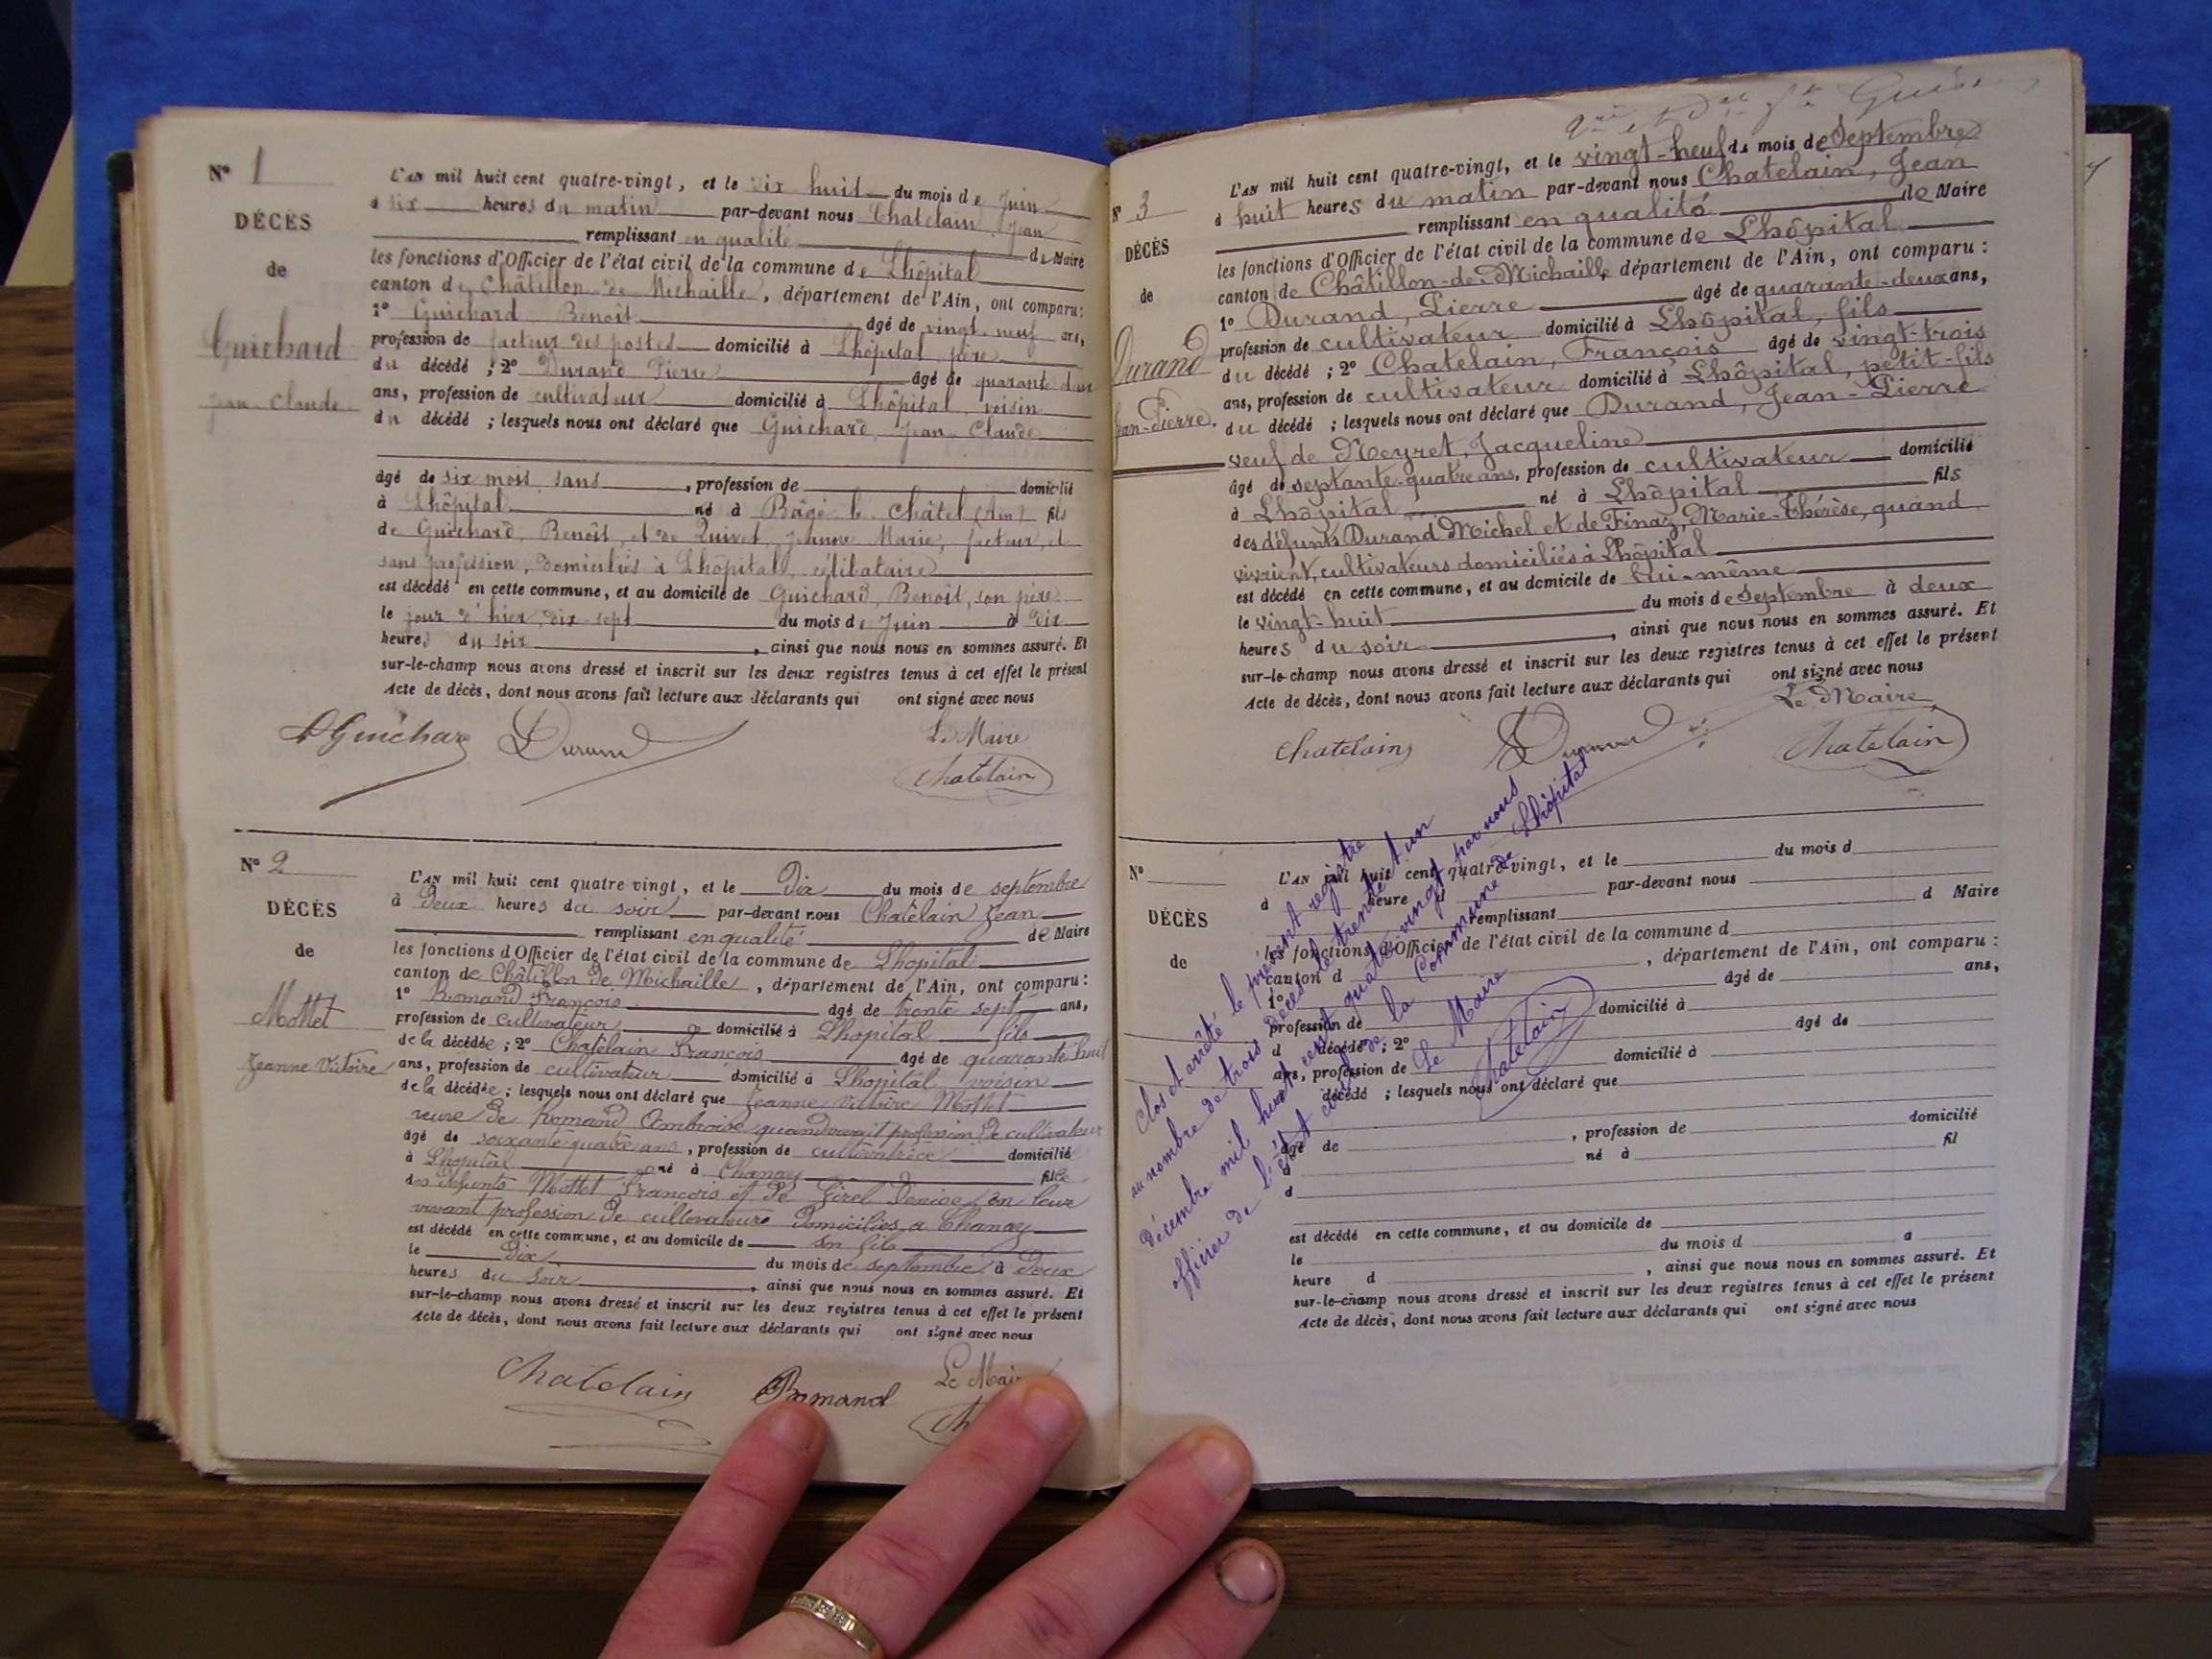 N° 1
DÉCÈS
de
Guichard
Jean Claude
L'AN mil huit cent quatre-vingt, et le dix huit du mois de Juin
à six heures du matin par-devant nous Chatelain Jean
remplissant en qualité de Maire
les fonctions d'Officier de l'état civil de la commune de Lhôpital
canton de Châtillon de Michaille, département de l'Ain, ont comparu:
1° Guichard Benoît âgé de vingt neuf ans,
profession de facteur des postes domicilié à Lhôpital père
du décédé ; 2° Durand Pierre âgé de quarante deux
ans, profession de cultivateur domicilié à Lhôpital voisin
du décédé ; lesquels nous ont déclaré que Guichard, Jean Claude
âgé de six mois sans, profession de domicilié
à Lhôpital né à Bâgé le Châtel (Ain) fils
de Guichard, Benoît, et de Quivet, Jeanne Marie, facteur, et
sans profession, domiciliés à Lhôpital, célibataire
est décédé en cette commune, et au domicile de Guichard, Benoît, son père
le jour d'hier, dix-sept du mois de Juin à dix
heures du soir, ainsi que nous nous en sommes assuré. Et
sur-le-champ nous avons dressé et inscrit sur les deux registres tenus à cet effet le présent
Acte de décès, dont nous avons fait lecture aux déclarants qui ont signé avec nous
Guichard Durand Le Maire
Chatelain
N° 2
DÉCÈS
de
Mottet
Jeanne Victoire
L'AN mil huit cent quatre vingt, et le Dix du mois de septembre
à Deux heures du soir par-devant nous Chatelain Jean
remplissant en qualité de Maire
les fonctions d'Officier de l'état civil de la commune de Lhopital
canton de Châtillon de Michaille, département de l'Ain, ont comparu:
1° Romand François âgé de trente sept ans,
profession de cultivateur domicilié à Lhopital fils
de la décédée ; 2° Chatelain François âgé de quarante huit
ans, profession de cultivateur domicilié à Lhopital voisin
de la décédée ; lesquels nous ont déclaré que Jeanne Victoire Mottet
veuve de Romand Ambroise quand vivait profession de cultivateur
âgé de soixante quatre ans, profession de cultivatrice domicilié
à Lhopital né à Chanay fille
des défunts Mottet François et de Girel Denise en leur
vivant profession de cultivateurs domiciliés a Chanay
est décédé en cette commune, et au domicile de son fils
le Dix du mois de septembre à Deux
heures du soir, ainsi que nous nous en sommes assuré. Et
sur-le-champ nous avons dressé et inscrit sur les deux registres tenus à cet effet le présent
Acte de décès, dont nous avons fait lecture aux déclarants qui ont signé avec nous
Chatelain Romand Le Maire
N° 3
DÉCÈS
de
Durand
Jean-Pierre.
L'AN mil huit cent quatre-vingt, et le vingt-neuf du mois de Septembre
à huit heures du matin par-devant nous Chatelain, Jean
remplissant en qualité de Maire
les fonctions d'Officier de l'état civil de la commune de Lhôpital
canton de Châtillon-de-Michaille, département de l'Ain, ont comparu :
1° Durand, Pierre âgé de quarante-deux ans,
profession de cultivateur domicilié à Lhôpital, fils
du décédé ; 2° Chatelain, François âgé de vingt-trois
ans, profession de cultivateur domicilié à Lhôpital, petit-fils
du décédé ; lesquels nous ont déclaré que Durand, Jean-Pierre
veuf de Meyret, Jacqueline
âgé de septante-quatre ans, profession de cultivateur domicilié
à Lhôpital né à Lhôpital fils
des défunts Durand Michel et de Finaz, Marie-Thérèse, quand
vivaient, cultivateurs domiciliés à Lhôpital
est décédé en cette commune, et au domicile de Lui-même
le vingt-huit du mois de septembre à deux
heures du soir, ainsi que nous nous en sommes assuré. Et
sur-le-champ nous avons dressé et inscrit sur les deux registres tenus à cet effet le présent
Acte de décès, dont nous avons fait lecture aux déclarants qui ont signé avec nous
Le Maire
Chatelain Durand Chatelain
N°
DÉCÈS
de
L'AN mil huit cent quatre-vingt, et le du mois d
à heure d par-devant nous
remplissant d Maire
les fonctions d'Officier de l'état civil de la commune d
canton d , département de l'Ain, ont comparu :
1° âgé de ans,
profession de domicilié à
d décédé ; 2° âgé de
ans, profession de domicilié à
décédé ; lesquels nous ont déclaré que
âgé de , profession de domicilié
à né à fil
d
est décédé en cette commune, et au domicile de
le du mois d à
heure d , ainsi que nous nous en sommes assuré. Et
sur-le-champ nous avons dressé et inscrit sur les deux registres tenus à cet effet le présent
Acte de décès, dont nous avons fait lecture aux déclarants qui ont signé avec nous
Clos et arrêté le présent registre
au nombre de trois décès le trente et un
décembre mil huit cent quatre vingt par nous
officier de l'état civil de la Commune de Lhôpital
Le Maire
Chatelain